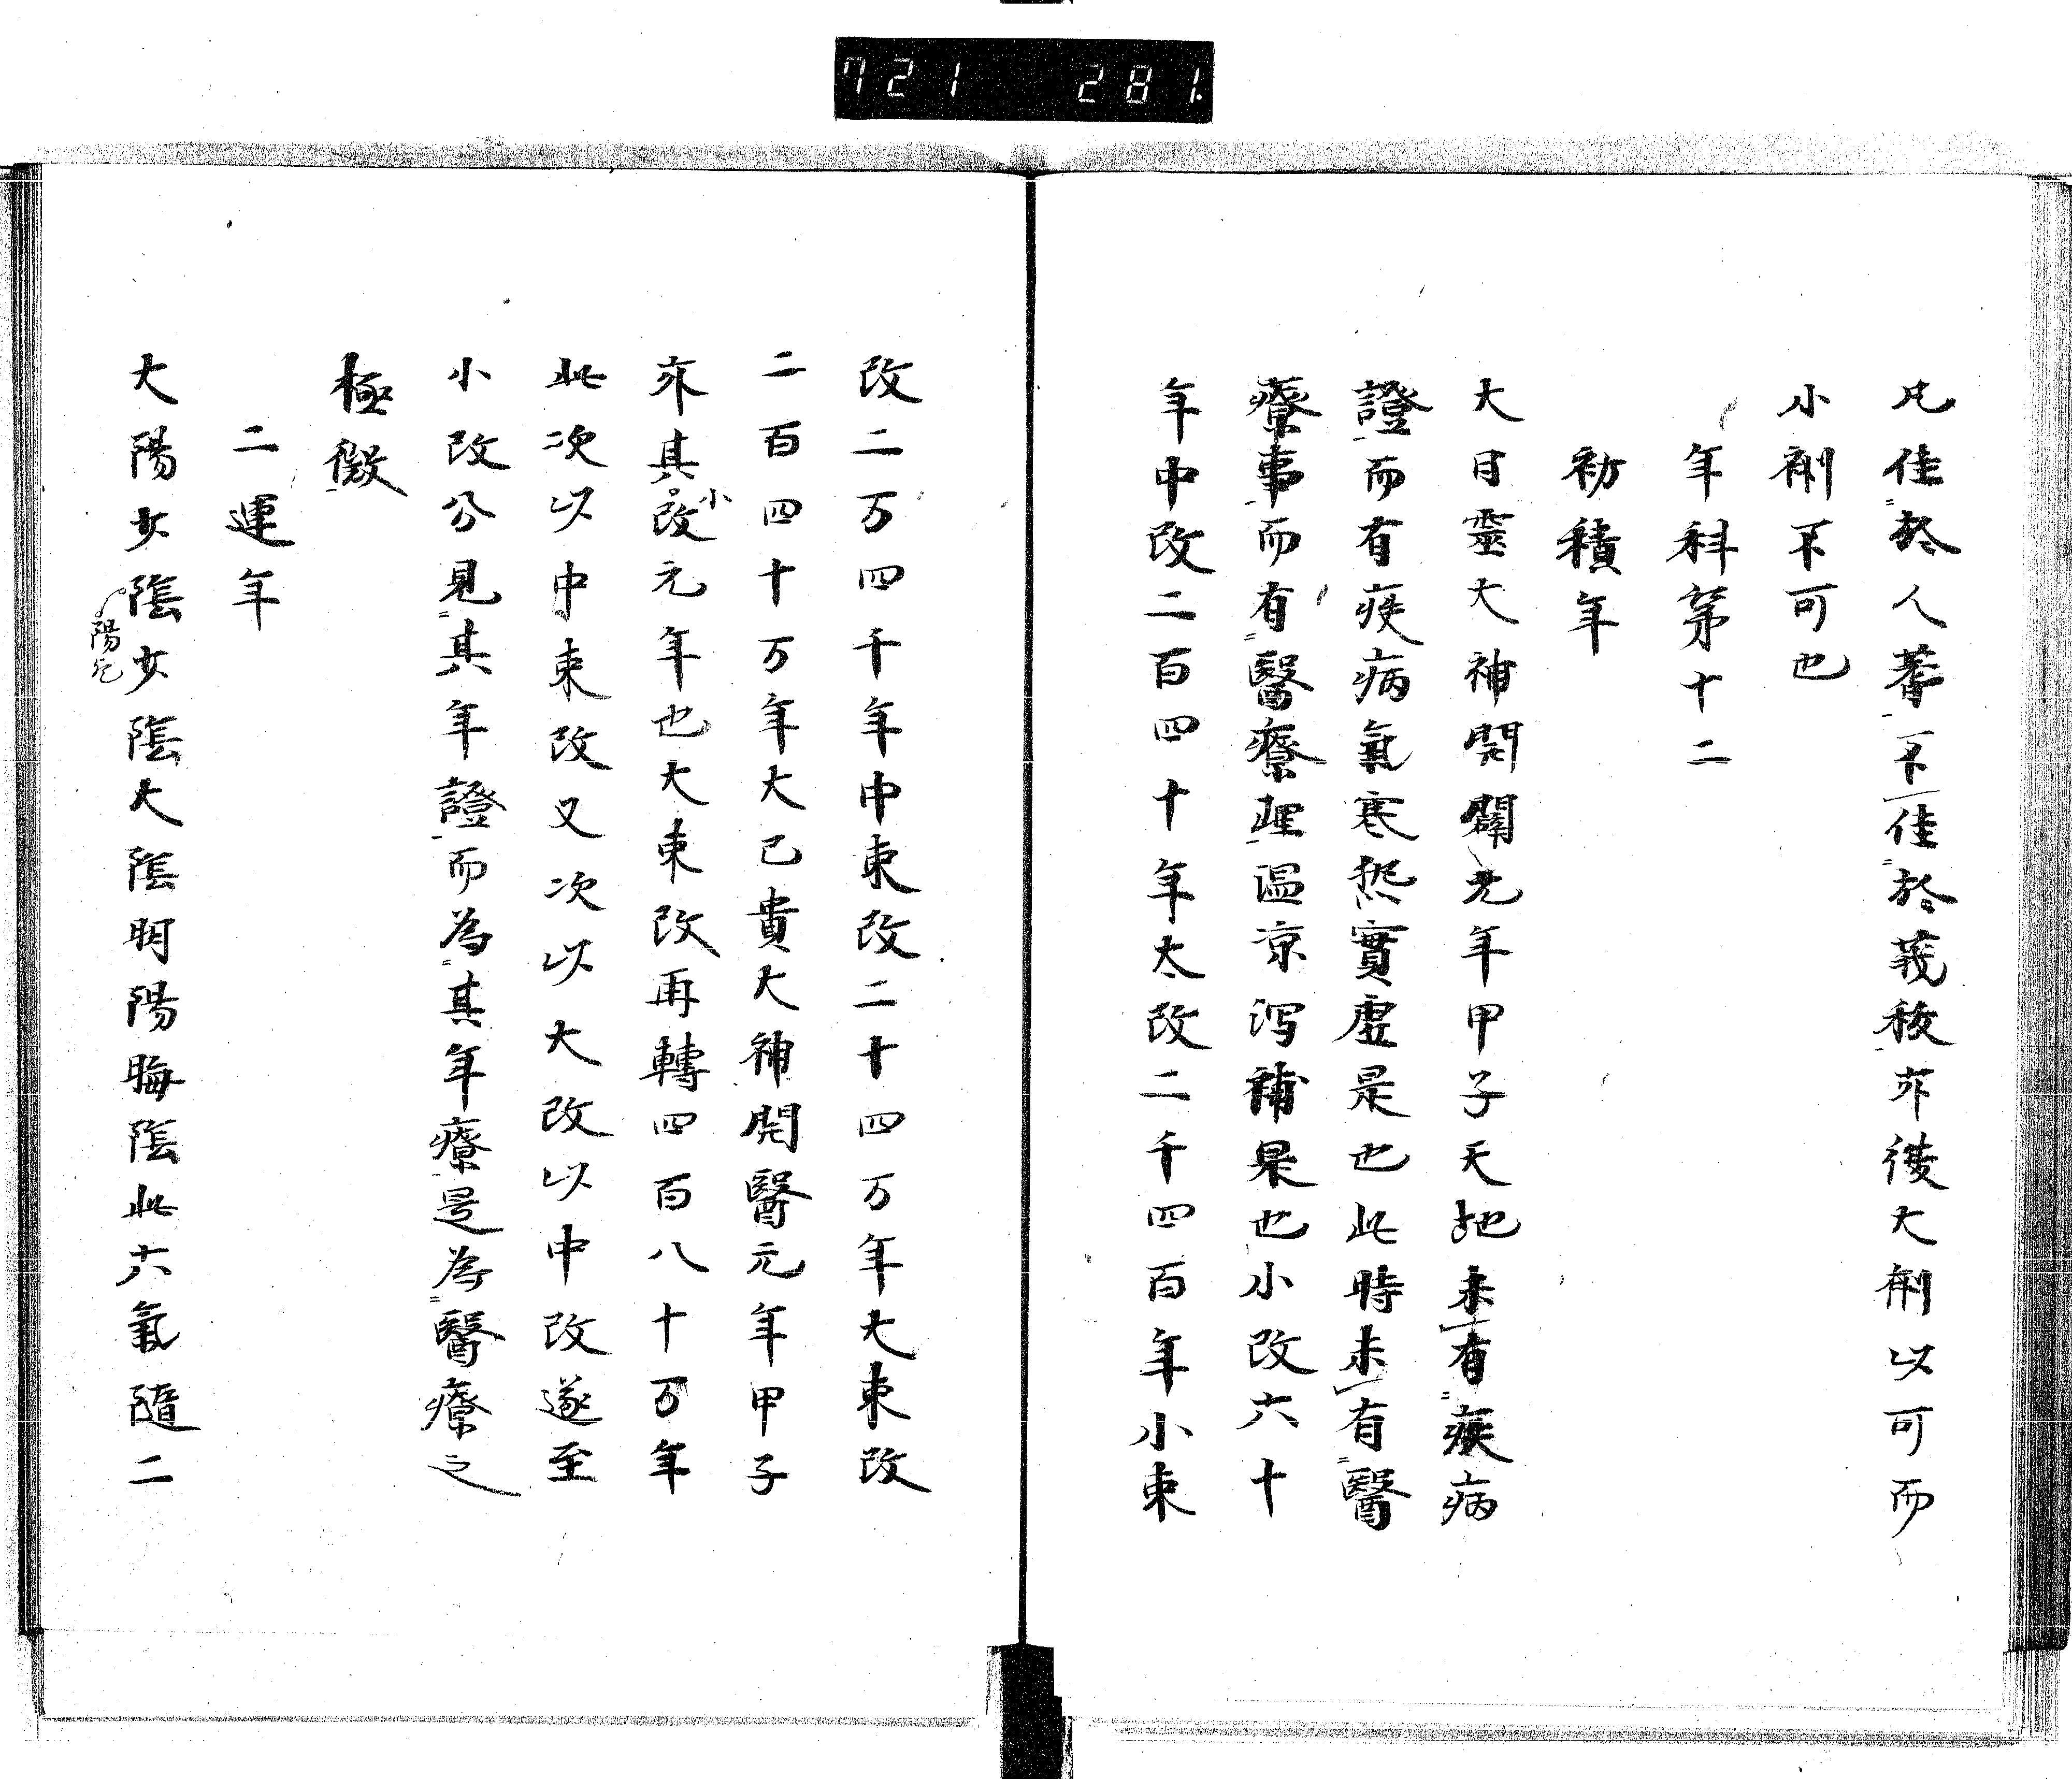 721 281.
凡佳於人蓍不佳於蓂秡亦後大削以可而
小削不可也
年科第十二
初積年
大日靈大神開闢元年甲子天地未有疾病
證而有疾病氣寒熱實虛是也此時未有醫
療事而有醫療理温凉泻補是也小改六十
年中改二百四十年大改二千四百年小束
改二万四千年中束改二十四万年大束改
二百四十万年大已貴大神開醫元年甲子
亦其小改元年也大束改再轉四百八十万年
此次以中束改又次以大改以中改遂至
小改分見其年證而為其年療是為醫療之
極徴
二運年
大陽女陰女陰大陰明陽晦陰此六氣隨二
陽乞